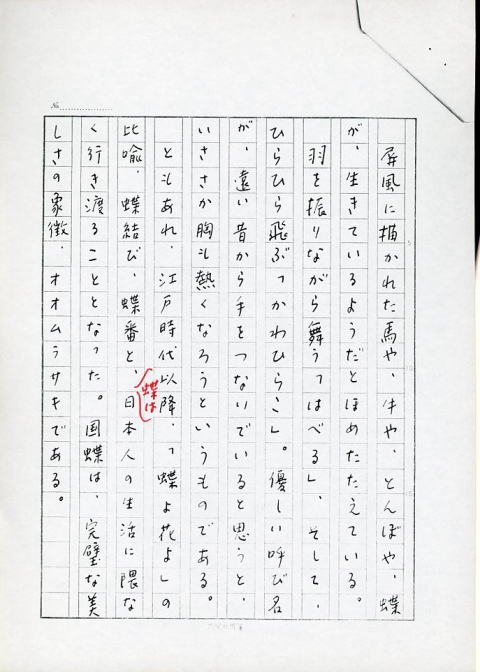 No.
屏風に描かれた馬や、牛や、とんぼや、蝶
が、生きているようだとほめたたえている。
羽を振りながら舞う「はべる」、そして、
ひらひら飛ぶ「かわひらこ」。優しい呼び名
が、遠い昔から手をつないでいると思うと、
いささか胸も熱くなろうというものである。
ともあれ、江戸時代以降、「蝶よ花よ」の
比喩、蝶結び、蝶番と、蝶は日本人の生活に隈な
く行き渡ることとなった。国蝶は、完璧な美
しさの象徴、オオムラサキである。
5
10
15